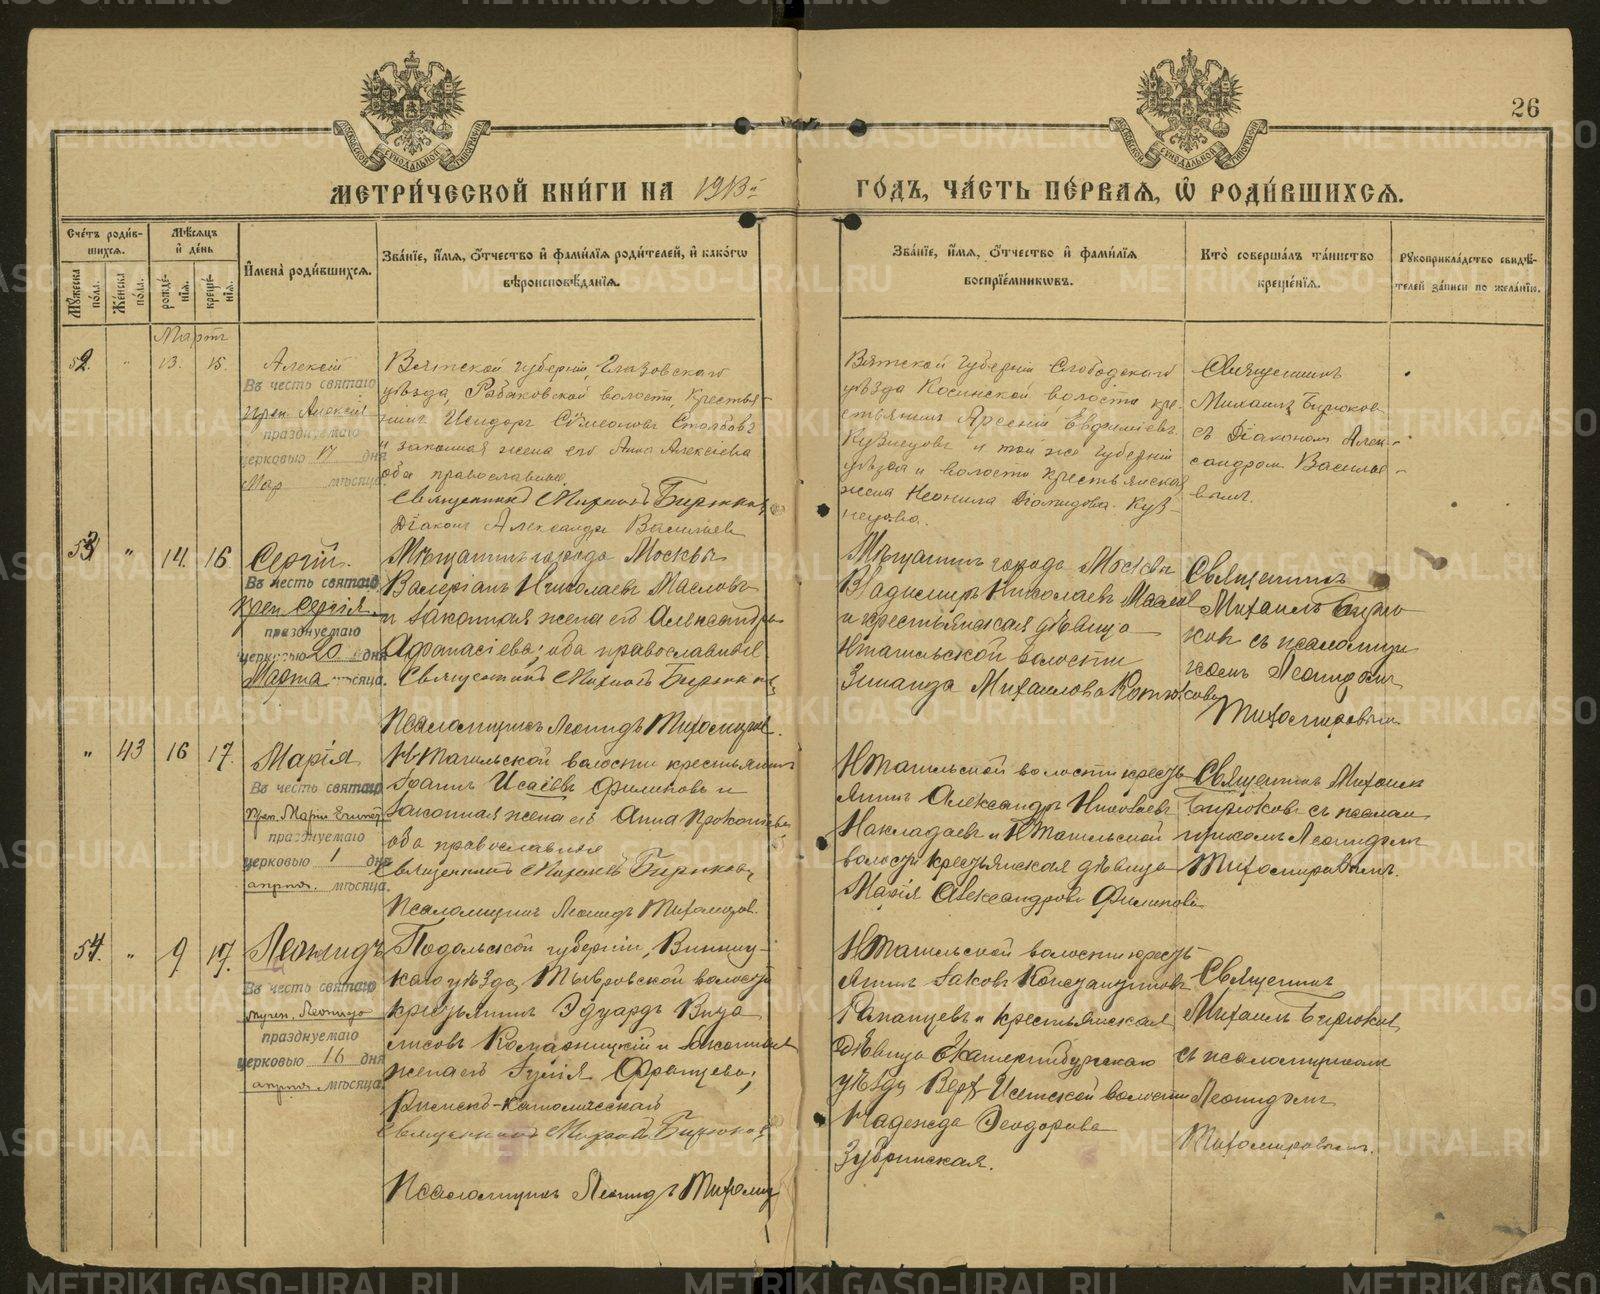 26
МЕТРИ́ЧЕСКОЙ КНИ́ГИ НА 1913й ГО́ДЪ, ЧА́СТЬ ПЕ́РВАЯ, Ѡ҆ РОДИ́ВШИХСѦ.
Сче́тъ роди́вшихсѧ.
Мꙋ́жеска по́ла.
Же́нска по́ла.
Мѣ́сяцъ и҆ де́нь
рожде́нїѧ.
креще́нїѧ.
И҆мена̀ роди́вшихсѧ.
Зва́нїе, и҆́мѧ, ѻ҆́тчество и҆ фами́лїѧ роди́телей, и҆ како́гѡ
вѣроисповѣ́данїѧ.
Зва́нїе, и҆́мѧ, ѻ҆́тчество и҆ фами́лїѧ
воспрїе́мникѡвъ.
Кто̀ соверша́лъ та́инство
креще́нїѧ.
Рꙋкоприкла́дство свидѣ́-
телей за́писи по жела́нїю.
Мартъ
52. " 13. 15. Алексій
Въ честь святаго
преп. Алексія
празднуемаго
церковью 17 дня
Мар мѣсяца.
Вятской губерніи, Глазовскаго
уѣзда, волости, Крестья-
нинъ Исидоръ Симеоновъ Столбовъ
и законная жена его Анна Алексіева
оба православные.
Священникъ Михаилъ Бирюковъ
Діаконъ Александръ Васильевъ
Вятской губерніи Слободскаго
уѣзда Косинской волости кре-
стьянинъ Арсеній Евфиміевъ
Кузнецовъ и той же губерніи
уѣзда и волости крестьянская
жена Неонила Діомидова Куз-
нецова.
Священникъ
Михаилъ Бирюковъ
съ Діакономъ Алек-
сандромъ Василье-
вымъ.
53 " 14. 16. Сергій.
Въ честь святаго
преп. Сергія
празднуемаго
церковью 20 дня
Марта мѣсяца.
Мѣщанинъ города Москвы
Валеріанъ Николаевъ Масловъ
и законная жена его Александра
Афанасіева; оба православные
Священникъ Михаилъ Бирюковъ
Псаломщикъ Леонидъ Тихомировъ.
Мѣщанинъ города Москвы
Владиміръ Николаевъ Масловъ
и крестьянская дѣвица
Н.Тагильской волости
Зинаида Михаилова
Священникъ
Михаилъ Бирю-
ковъ съ псаломщи-
комъ Леонидомъ
Тихомировымъ
" 43 16 17. Марія
Въ честь святаго
преп. Маріи Египет.
празднуемаго
церковью 1 дня
апрѣля. мѣсяца.
Н.Тагильской волости крестьянинъ
Іоаннъ Исаіевъ Филиповъ и
законная жена его Анна Прокопьева
оба православные
Священникъ Михаилъ Бирюковъ
Псаломщикъ Леонидъ Тихомиров.
Н.Тагильской волости кресть-
янинъ Александръ Николаевъ
Накладаевъ и Н.Тагильской
волости крестьянская дѣвица
Марія Александрова Филипова
Священникъ Михаилъ
Бирюковъ съ псалом-
щикомъ Леонидомъ
Тихомировымъ.
54. " 9 17. Леонидъ
Въ честь святаго
мучен. Леонида
празднуемаго
церковью 16 дня
апрѣля. мѣсяца.
Подольской губерніи, Винниц-
каго уѣзда, Тывровской волости
крестьянинъ Эдуардъ
и законная
жена его Юлія Францева;
Римско-католическаго
Священникъ Михаилъ Бирюковъ
Псаломщикъ Леонидъ Тихомир
Н.Тагильской волости кресть-
янинъ Іаковъ Константиновъ
и крестьянская
дѣвица Екатеринбургскаго
уѣзда Верх-Исетской волости
Надежда Ѳеодорова
Зубринская.
Священникъ
Михаилъ Бирюковъ
съ псаломщикомъ
Леонидомъ
Тихомировымъ.
METRIKI.GASO-URAL.RU